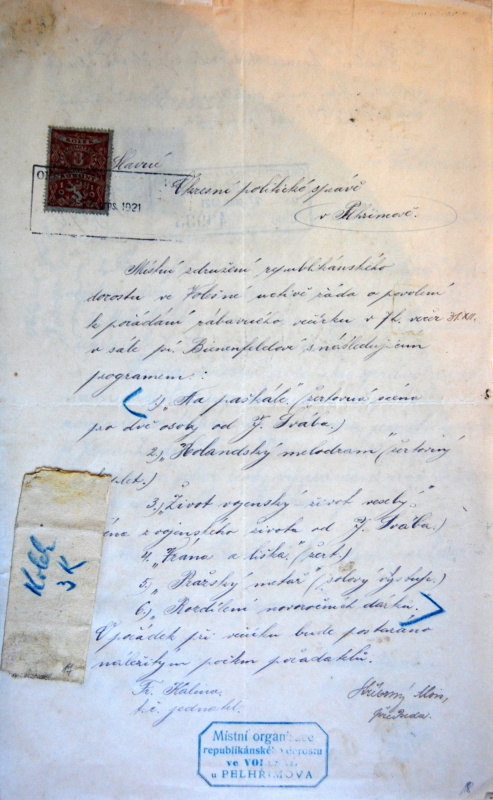 KOLEK
3
KORUNY
1919
Slavné
1921
Okresní politické správě
v Pelhřimově.
Místní sdružení republikánského
dorostu ve uctivě žádá o povolení
ku pořádání zábavného večírku v 7h. večer 31.XII.
v sále pí. Bienenfeldové s následujícím
programem:
1) „Na pasekále." (žertovná scéna
pro dvě osoby od J. Švába.)
2) „Holandský melodram" (žertovný
3) „Život vojenský život veselý."
z vojenského života od J. Švába.)
4. „Vrána a liška." (žert.)
5) „Pražský metař" (solový výstup.)
6) Rozdílení novoročních dárků.
O pořádek při večírku bude postaráno
náležitým počtem pořadatelů.
Kolek
3K
Fr. Kalina,
t.č. jednatel.
předseda.
Místní organisace
republikánského dorostu
ve
u PELHŘIMOVA